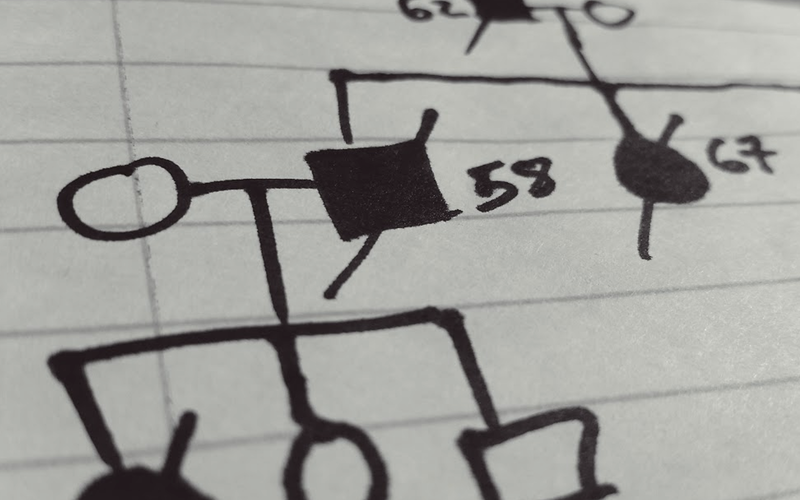 62
58
67